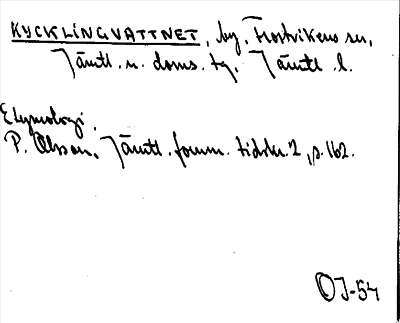 KYCKLINGVATTNET, by, Frostvikens sn,
Jämtl. n. doms. tg, Jämtl. l.
Etymologi.
P. Olsson, Jämtl. fornm. tidskr. 2, s. 162.
OJ-54